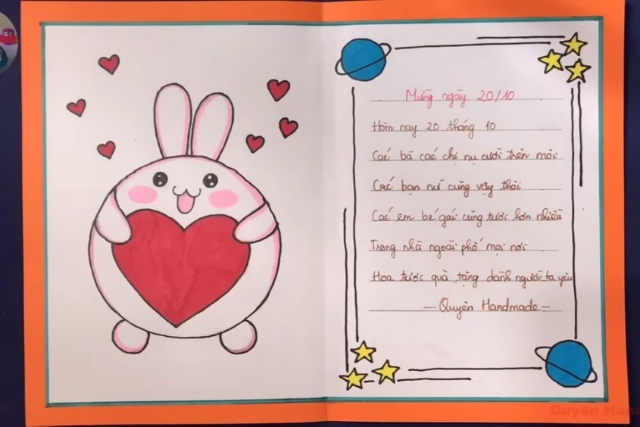 Mừng ngày 20/10
Hôm nay 20 tháng 10
Các bà các chị nụ cười trên môi
Các bạn nữ cũng vậy thôi
Các em bé gái cũng tươi hơn nhiều
Trong nhà ngoài phố mọi nơi
Hoa tươi quà tặng dành người ta yêu
- Quyên Handmade -